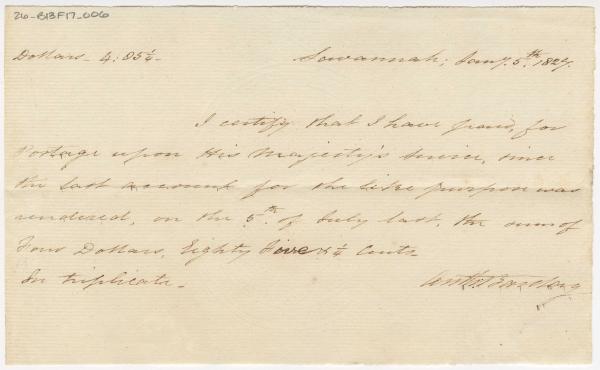 26-B13F17-006
Dollars - 4:85¼ - Savannah; Jany. 5th. 1827.
I certify that I have paid, for
Postage upon His Majesty's Service, since
the last account for the like purpose was
rendered, on the 5th. of July last, the sum of
Four Dollars, Eighty Five & ¼ Cents.
In triplicate.